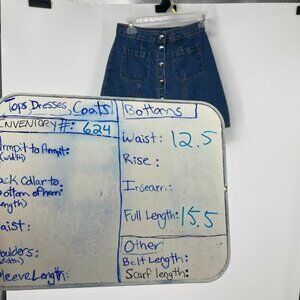 Tops, Dresses, Coats
INVENTORY #: 624
Armpit to Armpit:
(width)
Back Collar to
bottom of hem:
(length)
Waist:
Shoulders:
(width)
Sleeve Length:
Bottoms
Waist: 12.5
Rise:
Inseam:
Full Length: 15.5
Other
Belt Length:
Scarf length: